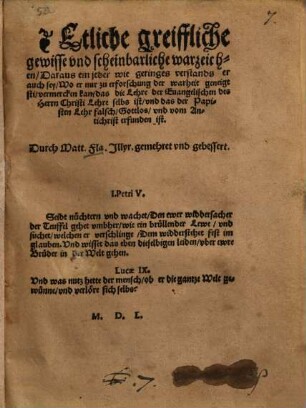 7.
Etliche greiffliche
gewisse vnd scheinbarliche warzeichen
en/ Daraus ein jeder wie geringes verstands er
auch sey/ Wo er nur zu erforschung der warheit geneigt
ist/ vermercken kan/ das die Lehre der Euangelischen des
Herrn Christi Lehre selbs ist/ vnd das der Papi-
sten Lehr falsch/ Gottlos/ vnd vom Anti-
christ erfunden ist.
Durch Matt. Fla. Illyr. gemehret vnd gebessert.
I. Petri V.
Seidt nüchtern vnd wachet/ Den ewer widdersacher
der Teuffel gehet vmbher/ wie ein bröllender Lewe/ vnd
suchet/ welchen er verschlinge/ Dem widderstehet fest im
glauben. Vnd wisset das eben dieselbigen leiden/ vber ewre
Brüder in der Welt gehen.
Lucæ IX.
Vnd was nutz hette der mensch/ ob er die gantze Welt ge-
wünne/ vnd verlöre sich selbs
M. D. L.
7.